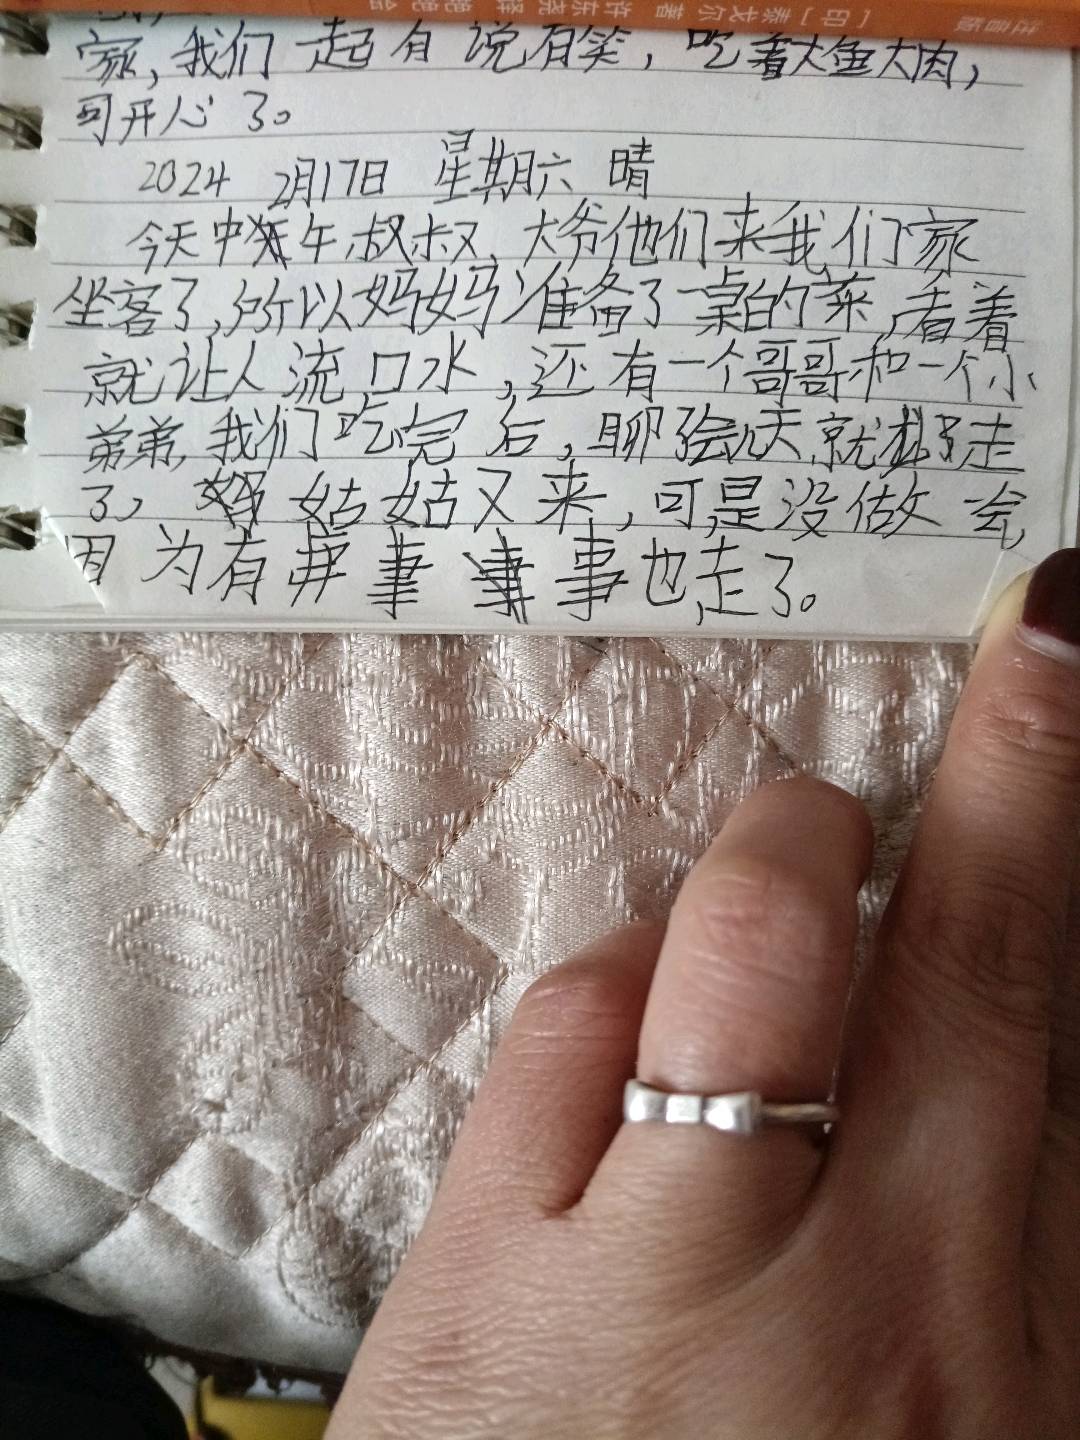 [印]泰戈尔 著 许栋梁 译
家,我们一起有说有笑,吃着大鱼大肉,
可开心了。
2024 2月17日 星期六 晴
今天中午叔叔,大爷他们来我们家
坐客了,所以妈妈准备了一桌的菜,看着
就让人流口水,还有一个哥哥和一个小
弟弟,我们吃完后,聊了会天就都走
了,姑姑又来,可是没做一会,
因为有事也走了。